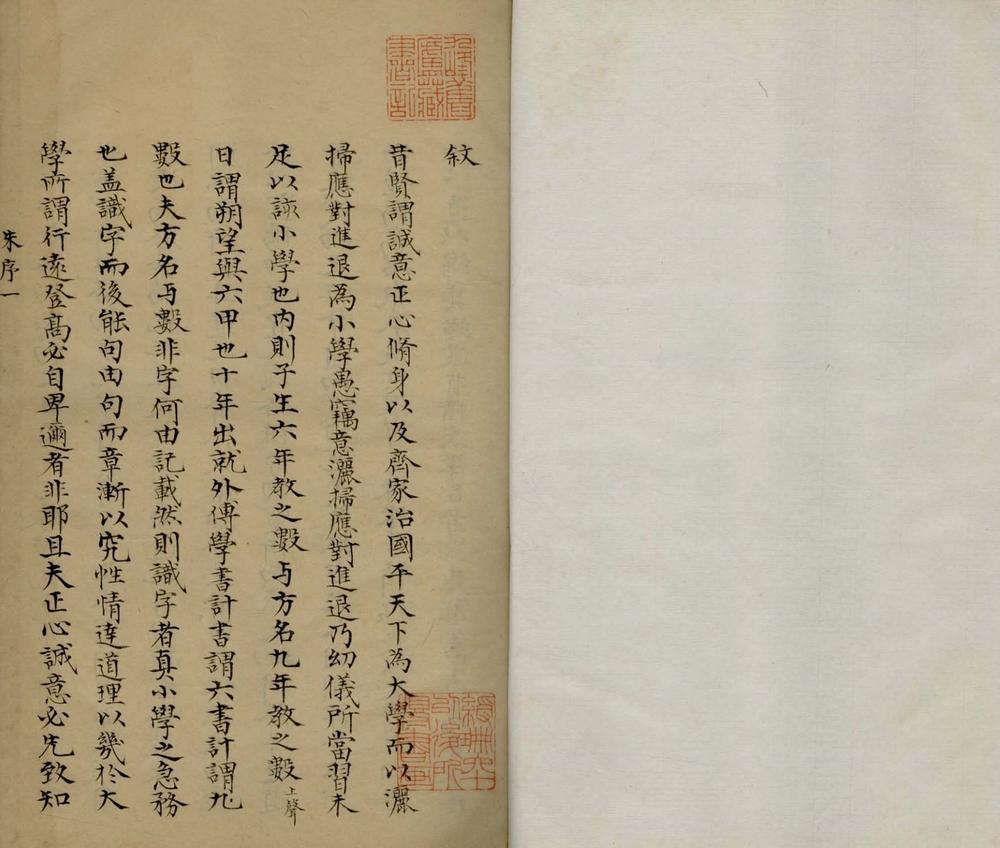 敘
昔賢謂誠意正心脩身以及齊家治國平天下為大學而以灑
掃應對進退為小學愚竊意灑掃應對進退乃幼儀所當習未
足以該小學也內則子生六年教之數与方名九年教之數上聲
日謂朔望與六甲也十年出就外傅學書計書謂六書計謂九
數也夫方名与數非字何由記載然則識字者真小學之急務
也盖識字而後能句由句而章漸以究性情達道理以幾於大
學所謂行遠登高必自卑邇者非耶且夫正心誠意必先致知
朱序一